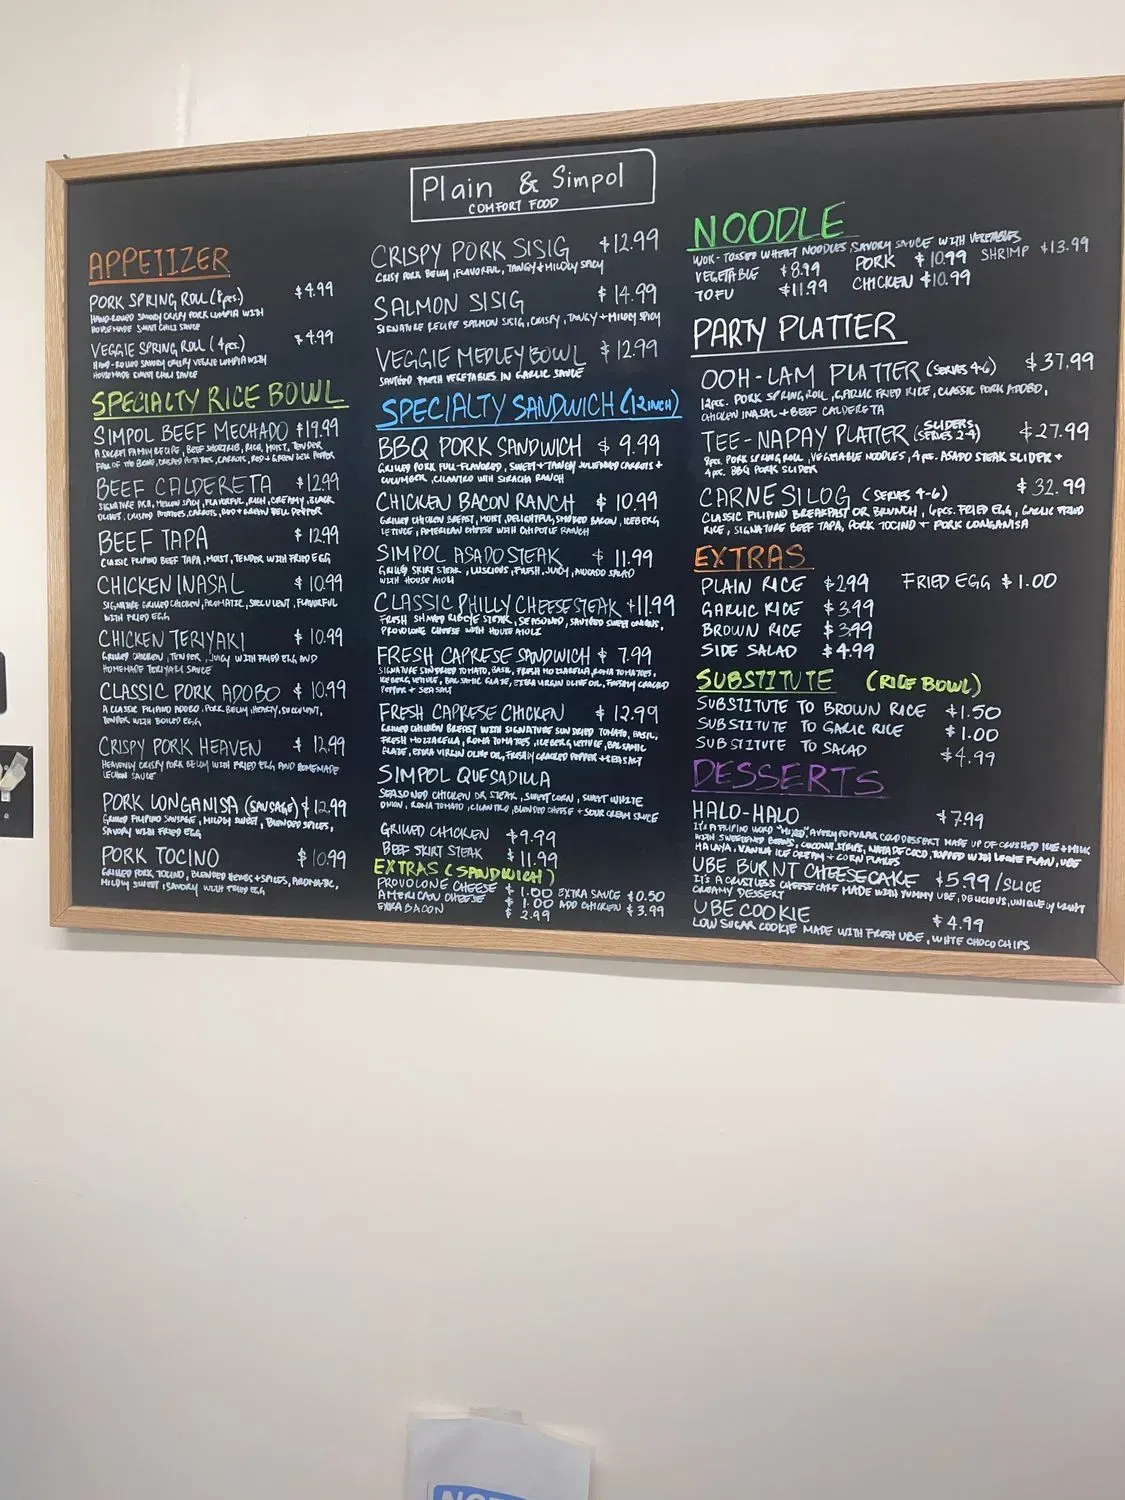 Plain & Simpol
COMFORT FOOD
APPETIZER
PORK SPRING ROLL (8pcs.) $4.99
HAND-ROLLED SAVORY CRISPY PORK LUMPIA WITH
HOUSEMADE SWEET CHILI SAUCE
VEGGIE SPRING ROLL (4pcs.) $4.99
HAND-ROLLED SAVORY CRISPY VEGGIE LUMPIA WITH
HOUSEMADE SWEET CHILI SAUCE
SPECIALTY RICE BOWL
SIMPOL BEEF MECHADO $19.99
A SECRET FAMILY RECIPE, BEEF SHORT RIB, RICH, MOIST, TENDER
FALL OF THE BONE, CRISPED POTATOES, CARROTS, RED + GREEN BELL PEPPER
BEEF CALDERETA $12.99
SIGNATURE DISH, MELLOW SPICY, FLAVORFUL, RICH, CREAMY, BLACK
OLIVES, CRISPED POTATOES, CARROTS, RED + GREEN BELL PEPPER
BEEF TAPA $12.99
CLASSIC FILIPINO BEEF TAPA, MOIST, TENDER WITH FRIED EGG
CHICKEN INASAL $10.99
SIGNATURE GRILLED CHICKEN, AROMATIC, SUCCULENT, FLAVORFUL
WITH FRIED EGG
CHICKEN TERIYAKI $10.99
GRILLED CHICKEN, TENDER, JUICY WITH FRIED EGG AND
HOMEMADE TERIYAKI SAUCE
CLASSIC PORK ADOBO $10.99
A CLASSIC FILIPINO ADOBO, PORK BELLY, HEARTY, SUCCULENT,
TENDER WITH BOILED EGG
CRISPY PORK HEAVEN $12.99
HEAVENLY CRISPY PORK BELLY WITH FRIED EGG AND HOMEMADE
LECHON SAUCE
PORK LONGANISA (SAUSAGE) $12.99
GRILLED FILIPINO SAUSAGE, MILDLY SWEET, BLENDED SPICES,
SAVORY WITH FRIED EGG
PORK TOCINO $10.99
GRILLED PORK TOCINO, BLENDED HERBS + SPICES, AROMATIC,
MILDLY SWEET, SAVORY WITH FRIED EGG
CRISPY PORK SISIG $12.99
CRISPY PORK BELLY, FLAVORFUL, TANGY + MILDLY SPICY
SALMON SISIG $14.99
SIGNATURE RECIPE SALMON SISIG, CRISPY, TANGY + MILDLY SPICY
VEGGIE MEDLEY BOWL $12.99
SAUTÉED FRESH VEGETABLES IN GARLIC SAUCE
SPECIALTY SANDWICH (12 INCH)
BBQ PORK SANDWICH $9.99
GRILLED PORK FULL-FLAVORED, SWEET + TANGY JULIENNED CARROTS +
CUCUMBER, CILANTRO WITH SIRACHA RANCH
CHICKEN BACON RANCH $10.99
GRILLED CHICKEN BREAST, MOIST, DELIGHTFUL, SMOKED BACON, ICEBERG
LETTUCE, AMERICAN CHEESE WITH CHIPOTLE RANCH
SIMPOL ASADO STEAK $11.99
GRILLED SKIRT STEAK, LUSCIOUS, FRESH, JUICY, AVOCADO SALAD
WITH HOUSE AIOLI
CLASSIC PHILLY CHEESESTEAK $11.99
FRESH SHAVED RIBEYE STEAK, SEASONED, SAUTÉED SWEET ONIONS,
PROVOLONE CHEESE WITH HOUSE AIOLI
FRESH CAPRESE SANDWICH $7.99
SIGNATURE SUNDRIED TOMATO, BASIL, FRESH MOZZARELLA, ROMA TOMATOES,
ICEBERG LETTUCE, BALSAMIC GLAZE, EXTRA VIRGIN OLIVE OIL, FRESHLY CRACKED
PEPPER + SEA SALT
FRESH CAPRESE CHICKEN $12.99
GRILLED CHICKEN BREAST WITH SIGNATURE SUN DRIED TOMATO, BASIL,
FRESH MOZZARELLA, ROMA TOMATOES, ICEBERG LETTUCE, BALSAMIC
GLAZE, EXTRA VIRGIN OLIVE OIL, FRESHLY CRACKED PEPPER + SEA SALT
SIMPOL QUESADILLA
SEASONED CHICKEN OR STEAK, SWEET CORN, SWEET WHITE
ONION, ROMA TOMATO, CILANTRO, BLENDED CHEESE + SOUR CREAM SAUCE
GRILLED CHICKEN $9.99
BEEF SKIRT STEAK $11.99
EXTRAS (SANDWICH)
PROVOLONE CHEESE $1.00 EXTRA SAUCE $0.50
AMERICAN CHEESE $1.00 ADD CHICKEN $3.99
EXTRA BACON $2.99
NOODLE
WOK-TOSSED WHEAT NOODLES, SAVORY SAUCE WITH VEGETABLES
VEGETABLE $8.99 PORK $10.99 SHRIMP $13.99
TOFU $11.99 CHICKEN $10.99
PARTY PLATTER
OOH-LAM PLATTER (SERVES 4-6) $37.99
12pcs. PORK SPRING ROLL, GARLIC FRIED RICE, CLASSIC PORK ADOBO,
CHICKEN INASAL + BEEF CALDERETA
TEE-NAPAY PLATTER (SLIDERS SERVES 2-4) $27.99
8pcs. PORK SPRING ROLL, VEGETABLE NOODLES, 4pcs. ASADO STEAK SLIDER +
4pcs. BBQ PORK SLIDER
CARNESILOG (SERVES 4-6) $32.99
CLASSIC FILIPINO BREAKFAST OR BRUNCH, 6pcs. FRIED EGG, GARLIC FRIED
RICE, SIGNATURE BEEF TAPA, PORK TOCINO + PORK LONGANISA
EXTRAS
PLAIN RICE $2.99 FRIED EGG $1.00
GARLIC RICE $3.99
BROWN RICE $3.99
SIDE SALAD $4.99
SUBSTITUTE (RICE BOWL)
SUBSTITUTE TO BROWN RICE $1.50
SUBSTITUTE TO GARLIC RICE $1.00
SUBSTITUTE TO SALAD $4.99
DESSERTS
HALO-HALO $7.99
IT'S A FILIPINO WORD "MIXED", A VERY POPULAR COLD DESSERT MADE UP OF CRUSHED ICE + MILK
WITH SWEETENED BEANS, COCONUT STRIPS, NATA DE COCO, TOPPED WITH LECHE FLAN, UBE
HALAYA, VANILLA ICE CREAM + CORN FLAKES
UBE BURNT CHEESECAKE $5.99/SLICE
IT'S A CRUSTLESS CHEESECAKE MADE WITH YUMMY UBE, DELICIOUS, UNIQUELY LIGHT
CREAMY DESSERT
UBE COOKIE $4.99
LOW SUGAR COOKIE MADE WITH FRESH UBE, WHITE CHOCO CHIPS